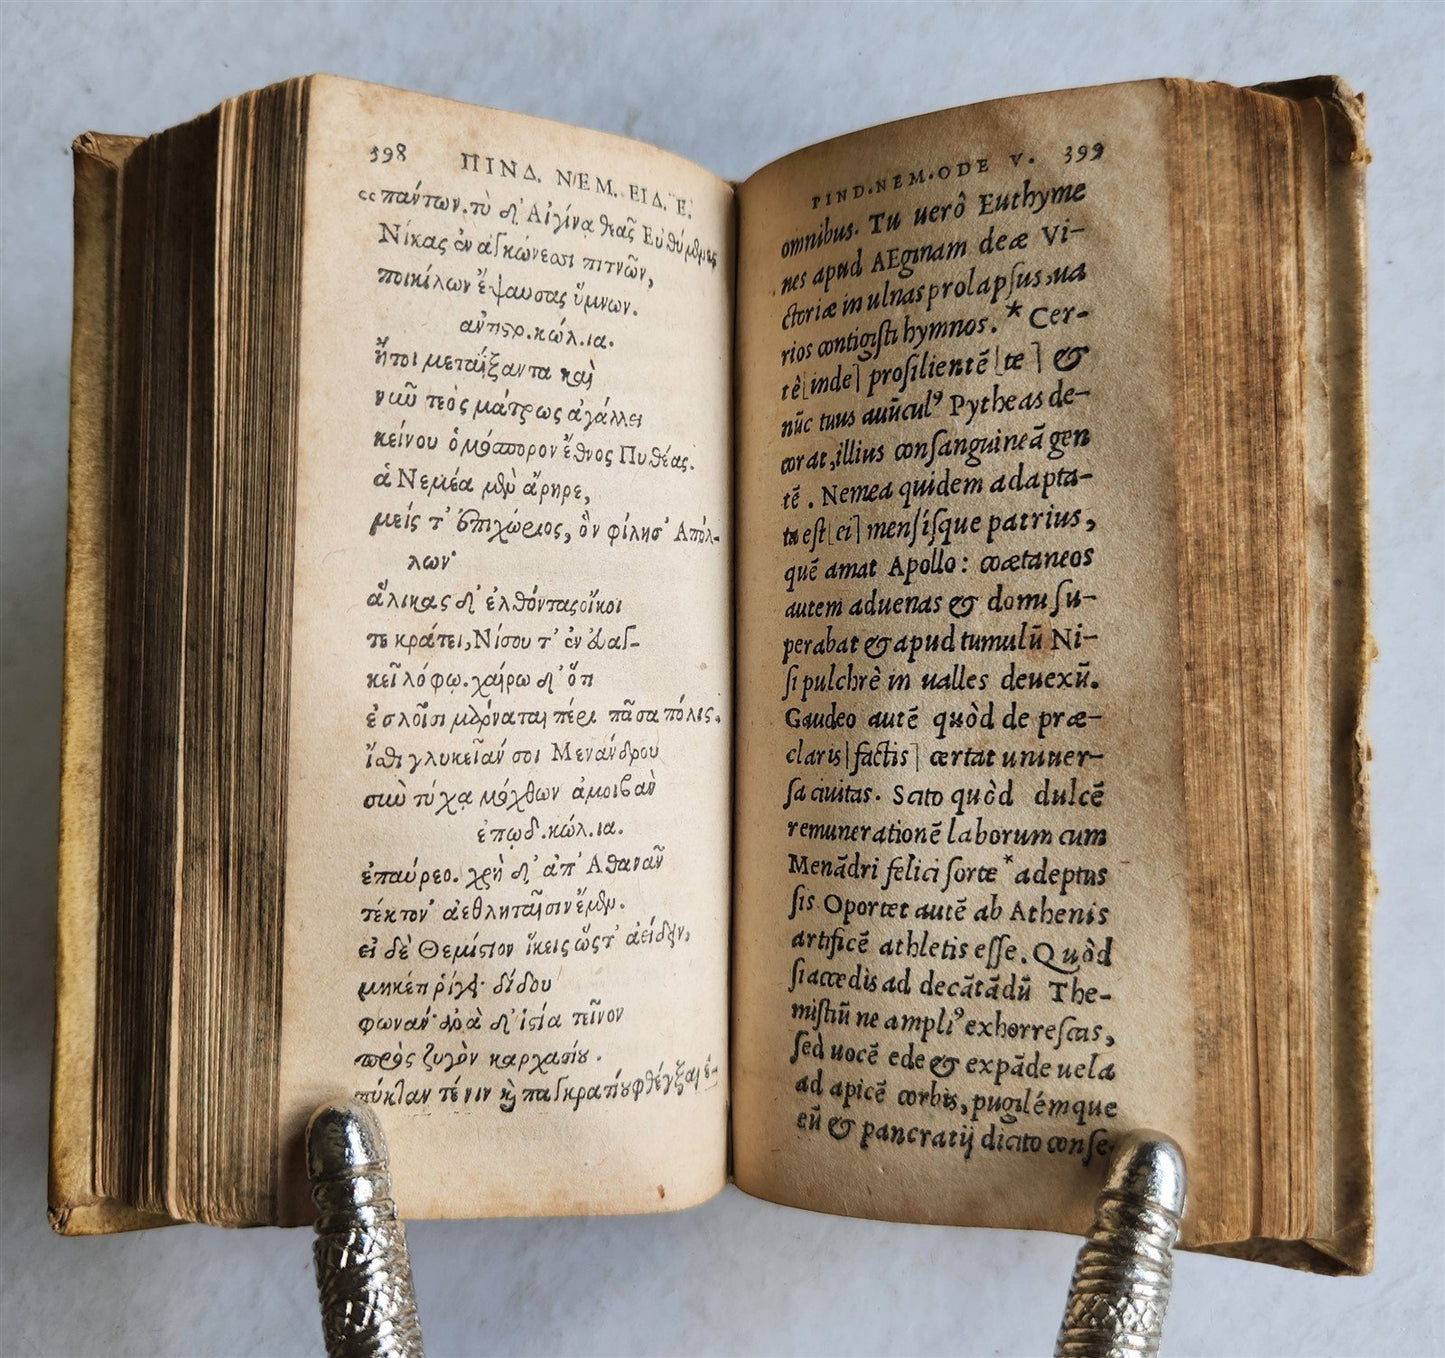 398 ΠΙΝΔ. ΝΕΜ. ΕΙΔ. Ε.
πάντων. τὺ δ' Αἰγίνᾳ θεᾶς Εὐθύμενες
Νίκας ἐν ἀγκώνεσσι πιτνῶν,
ποικίλων ἔψαυσας ὕμνων.
ἀντιστρ. κώλ. ια.
ἤτοι μεταΐξαντα καὶ
νῦν τεὸς μάτρως ἀγάλλει
κείνου ὁμόσπορον ἔθνος Πυθέας.
ἁ Νεμέα μὲν ἄρηρε,
μείς τ' ἐπιχώριος, ὃν φίλησ' Ἀπόλ-
λων·
ἅλικας δ' ἐλθόντας οἴκοι
τε κράτει, Νίσου τ' ἐν εὐαγ-
κεῖ λόφῳ. χαίρω δ' ὅτι
ἐσλοῖσι μάρναται πέρι πᾶσα πόλις.
ἴσθι γλυκεῖάν σοι Μενάνδρου
σὺν τύχᾳ μόχθων ἀμοιβὰν
ἐπῳδ. κώλ. ια.
ἐπαύρεο. χρὴ δ' ἀπ' Ἀθανᾶν
τέκτον' ἀεθληταῖσιν ἔμμεν.
εἰ δὲ Θεμίστιον ἵκεις ὥστ' ἀείδειν,
μηκέτι ῥίγει· δίδου
φωνάν· ἀνὰ δ' ἱστία τεῖνον
πρὸς ζυγὸν καρχασίου.
πύκταν τέ νιν καὶ παγκρατίου φθέγξαι ἑ-
PIND. NEM. ODE V. 399
omnibus. Tu uerò Euthyme
nes apud AEginam deæ Vi-
ctoriæ in ulnas prolapsus, ua
rios contigisti hymnos. * Cer-
tè [inde] prosilientẽ [te] &
nũc tuus auũcul⁹ Pytheas de-
corat, illius consanguineã gen
tẽ. Nemea quidem adapta-
ta est [ei] mensísque patrius,
quẽ amat Apollo: coætaneos
autem aduenas & domi su-
perabat & apud tumulũ Ni-
si pulchrè in ualles deuexũ.
Gaudeo autẽ quòd de præ-
claris [factis] certat uniuer-
sa ciuitas. Scito quòd dulcẽ
remunerationẽ laborum cum
Menãdri felici sorte * adeptus
sis. Oportet autẽ ab Athenis
artificẽ athletis esse. Quòd
si accedis ad decãtãdũ The-
mistiũ ne ampli⁹ exhorrescas,
sed uocẽ ede & expãde uela
ad apicẽ corbis, pugilémque
eũ & pancratij dicito conse-